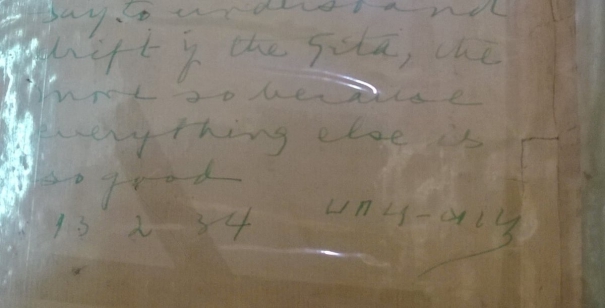 say, to understand
drift of the Gita, the
more so because
everything else is
so good
13 2 34